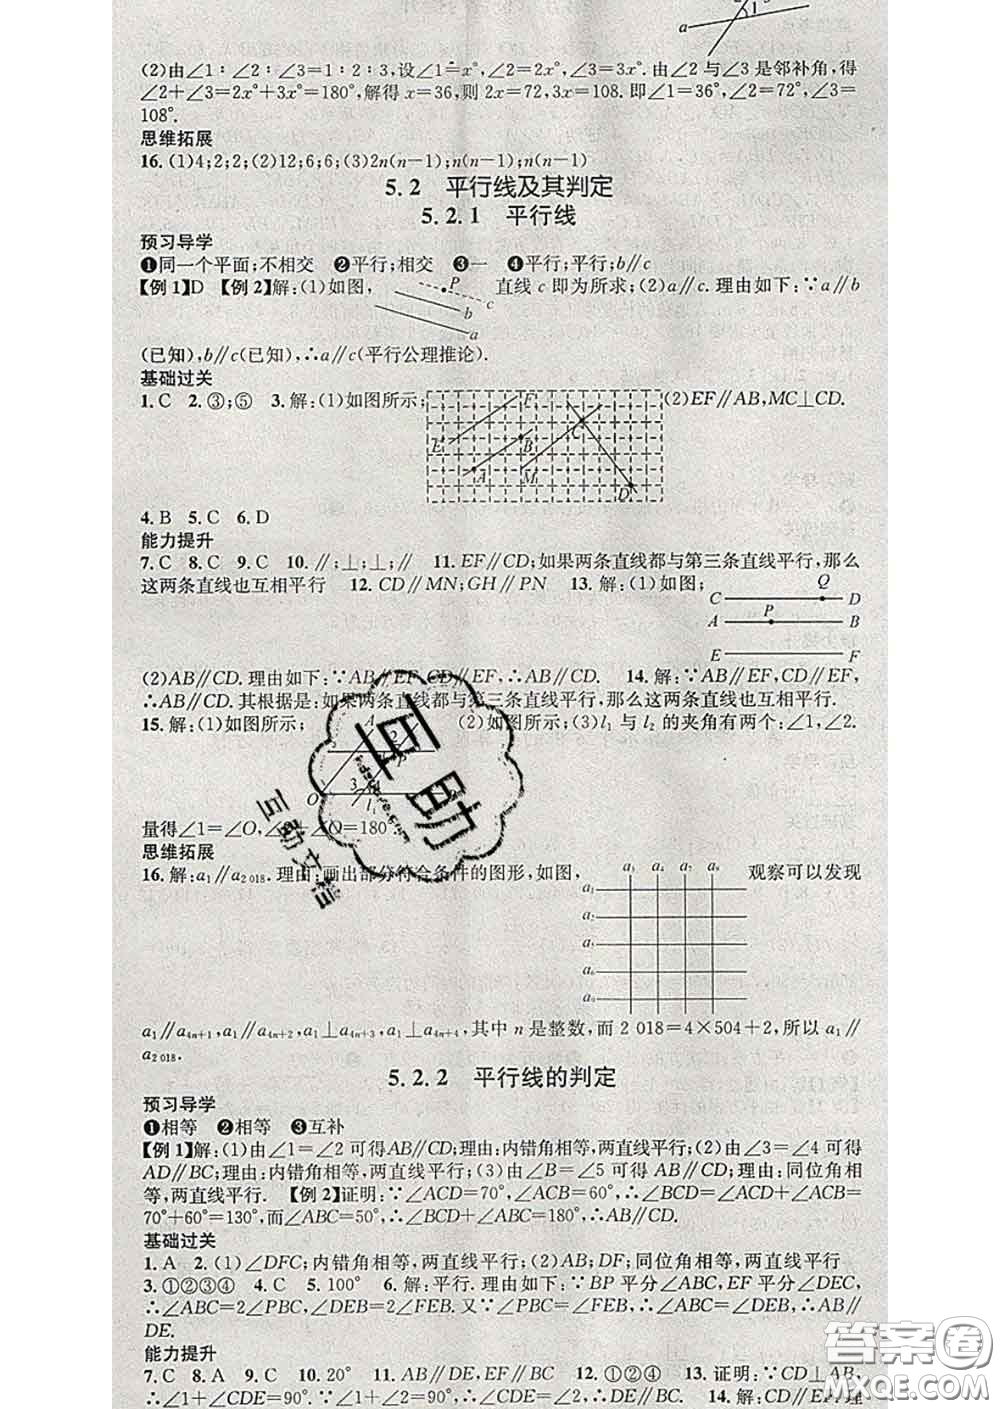 a 1
(2)由∠1∶∠2∶∠3=1∶2∶3,设∠1=x°,∠2=2x°,∠3=3x°.由∠2与∠3是邻补角,得
∠2+∠3=2x°+3x°=180°,解得x=36,则2x=72,3x=108.即∠1=36°,∠2=72°,∠3=
108°.
思维拓展
16.(1)4;2;2;(2)12;6;6;(3)2n(n-1);n(n-1);n(n-1)
5.2 平行线及其判定
5.2.1 平行线
预习导学
❶同一个平面;不相交 ❷平行;相交 ❸一 ❹平行;平行;b∥c
【例1】D 【例2】解:(1)如图, P c b a 直线c即为所求;(2)a∥c.理由如下:∵a∥b
(已知),b∥c(已知),∴a∥c(平行公理推论).
基础过关
1.C 2.③;⑤ 3.解:(1)如图所示; E F A B M C D (2)EF∥AB,MC⊥CD.
4.B 5.C 6.D
能力提升
7.C 8.C 9.C 10.∥;⊥;⊥;∥ 11.EF∥CD;如果两条直线都与第三条直线平行,那么
这两条直线也互相平行 12.CD∥MN;GH∥PN 13.解:(1)如图;
C Q D
A P B
E F
(2)AB∥CD.理由如下:∵AB∥EF,CD∥EF,∴AB∥CD. 14.解:∵AB∥EF,CD∥EF,
∴AB∥CD.其根据是:如果两条直线都与第三条直线平行,那么这两条直线也互相平行.
15.解:(1)如图所示; A 2 3 O l₁ (2)如图所示;(3)l₁与l₂的夹角有两个:∠1,∠2.
量得∠1=∠O, +∠O=180°
思维拓展
16.解:a₁∥a₂₀₁₈.理由:画出部分符合条件的图形,如图, 观察可以发现
a₃ a₄ a₇ a₈
a₁
a₂
a₅
a₆
a₉
a₁∥a₄ₙ₊₁,a₁∥a₄ₙ₊₂,a₁⊥a₄ₙ₊₃,a₁⊥a₄ₙ₊₄,其中n是整数,而2 018=4×504+2,所以a₁∥
a₂₀₁₈.
5.2.2 平行线的判定
预习导学
❶相等 ❷相等 ❸互补
【例1】解:(1)由∠1=∠2可得AB∥CD;理由:内错角相等,两直线平行;(2)由∠3=∠4可得
AD∥BC;理由:内错角相等,两直线平行;(3)由∠B=∠5可得AB∥CD;理由:同位角相
等,两直线平行. 【例2】证明:∵∠ACD=70°,∠ACB=60°,∴∠BCD=∠ACD+∠ACB=
70°+60°=130°,而∠ABC=50°,∴∠BCD+∠ABC=180°,∴AB∥CD.
基础过关
1.A 2.(1)∠DFC;内错角相等,两直线平行;(2)AB;DF;同位角相等,两直线平行
3.①②③④ 4.C 5.100° 6.解:平行.理由如下:∵BP平分∠ABC,EF平分∠DEC,
∴∠ABC=2∠PBC,∠DEB=2∠FEB.又∵∠PBC=∠FEB,∴∠ABC=∠DEB,∴AB∥
DE.
能力提升
7.C 8.A 9.C 10.20° 11.AB∥DE,EF∥BC 12.①②④ 13.证明:∵CD⊥AB,
∴∠1+∠CDE=90°.∵∠1+∠2=90°,∴∠CDE=∠2,∴DE∥BC. 14.解:CD∥EF.理
互助
互助文档
答案圈
MXQE.COM